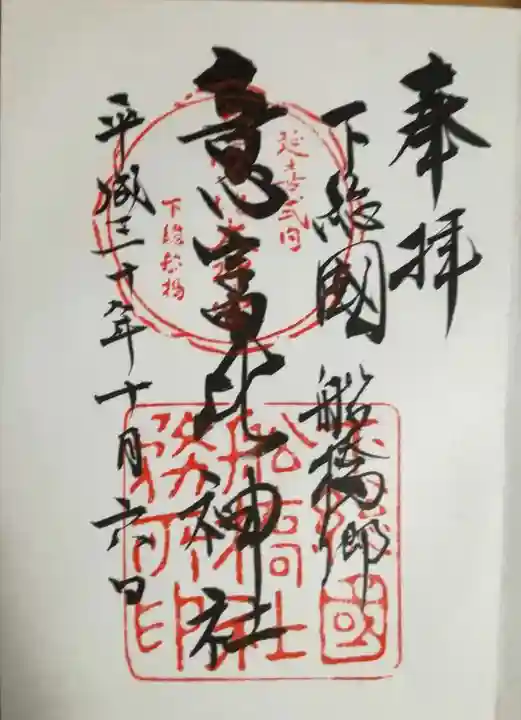 奉拝
下總國 船橋郷
意富比神社
平成三十年十月六日
延喜式内
下総船橋